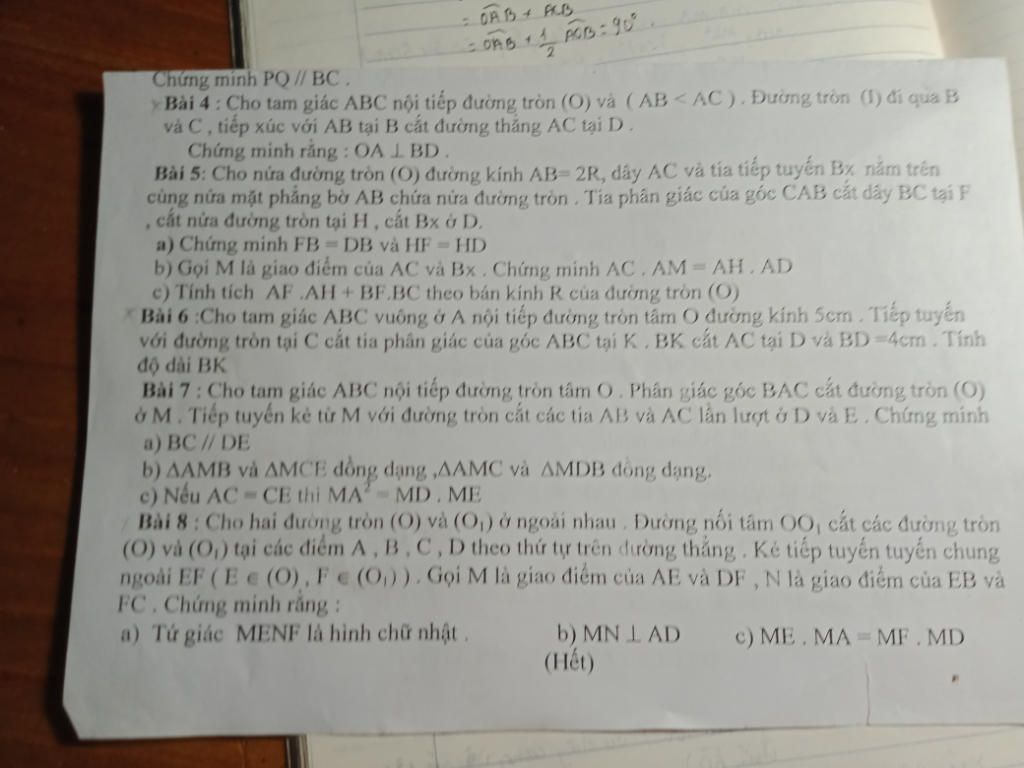 = OAB + ACB
= OAB + 1/2 AOB = 90°.
Chứng minh PQ // BC .
Bài 4 : Cho tam giác ABC nội tiếp đường tròn (O) và ( AB < AC ) . Đường tròn (I) đi qua B
và C , tiếp xúc với AB tại B cắt đường thẳng AC tại D .
Chứng minh rằng : OA ⊥ BD .
Bài 5: Cho nửa đường tròn (O) đường kính AB= 2R, dây AC và tia tiếp tuyến Bx nằm trên
cùng nửa mặt phẳng bờ AB chứa nửa đường tròn . Tia phân giác của góc CAB cắt dây BC tại F
, cắt nửa đường tròn tại H , cắt Bx ở D.
a) Chứng minh FB = DB và HF = HD
b) Gọi M là giao điểm của AC và Bx . Chứng minh AC . AM = AH . AD
c) Tính tích AF .AH + BF.BC theo bán kính R của đường tròn (O)
Bài 6 :Cho tam giác ABC vuông ở A nội tiếp đường tròn tâm O đường kính 5cm . Tiếp tuyến
với đường tròn tại C cắt tia phân giác của góc ABC tại K . BK cắt AC tại D và BD =4cm . Tính
độ dài BK
Bài 7 : Cho tam giác ABC nội tiếp đường tròn tâm O . Phân giác góc BAC cắt đường tròn (O)
ở M . Tiếp tuyến kẻ từ M với đường tròn cắt các tia AB và AC lần lượt ở D và E . Chứng minh
a) BC // DE
b) ΔAMB và ΔMCE đồng dạng ,ΔAMC và ΔMDB đồng dạng.
c) Nếu AC = CE thì MA² = MD . ME
Bài 8 : Cho hai đường tròn (O) và (O₁) ở ngoài nhau . Đường nối tâm OO₁ cắt các đường tròn
(O) và (O₁) tại các điểm A , B , C , D theo thứ tự trên đường thẳng . Kẻ tiếp tuyến tuyến chung
ngoài EF ( E ∈ (O) , F ∈ (O₁) ) . Gọi M là giao điểm của AE và DF , N là giao điểm của EB và
FC . Chứng minh rằng :
a) Tứ giác MENF là hình chữ nhật . b) MN ⊥ AD c) ME . MA = MF . MD
(Hết)